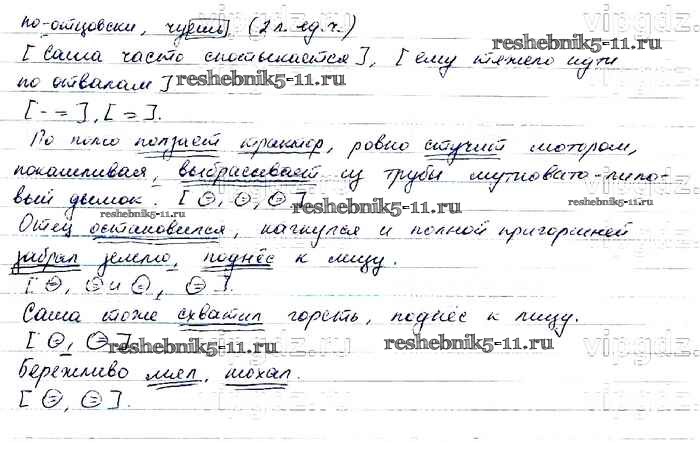 по-отцовски, чуешь (2 л. ед. ч.)
[Саша часто спотыкается], [ему тяжело идти
по отвалам]
reshebnik5-11.ru
[- =], [=].
По полю ползает трактор, ровно стучит мотором,
покашливая, выбрасывает из трубы мутновато-лило-
вый дымок. [=, =, =]
reshebnik5-11.ru reshebnik5-11.ru
Отец остановился, нагнулся и полной пригоршней
забрал землю, поднёс к лицу.
[=, = и =, =]
Саша тоже схватил горсть, поднёс к лицу.
[=, =]
reshebnik5-11.ru reshebnik5-11.ru
Бережливо мял, нюхал.
[=, =].
vipgdz.ru
vipgdz.ru